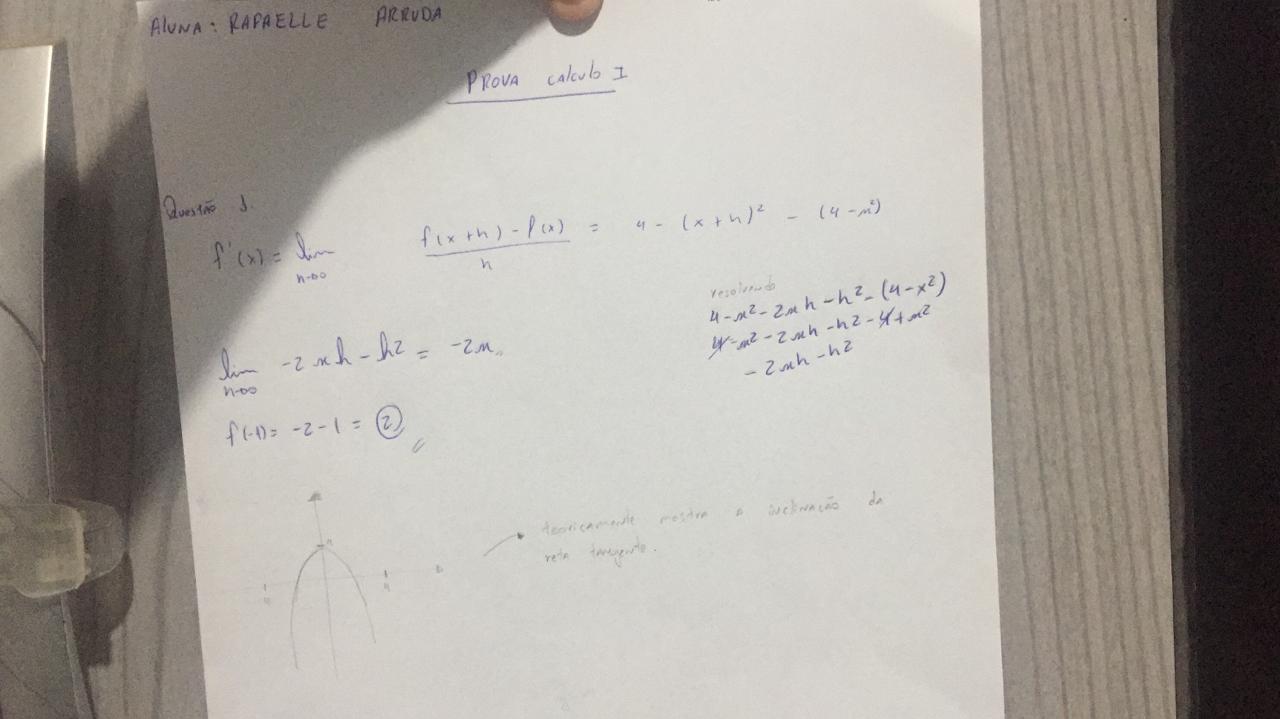 ALUNA: RAFAELLE ARRUDA
PROVA CALCULO I
Questão 1.
f'(x) = lim h→0 f(x+h) - f(x) / h = 4 - (x+h)² - (4-x²)
resolvendo
4-x²-2xh-h²-(4-x²)
4-x²-2xh-h2-4+x²
-2xh-h2
lim h→0 -2xh-h2 = -2x
f(-1)= -2-1 = 2
teoricamente mostra a inclinação da
reta tangente.